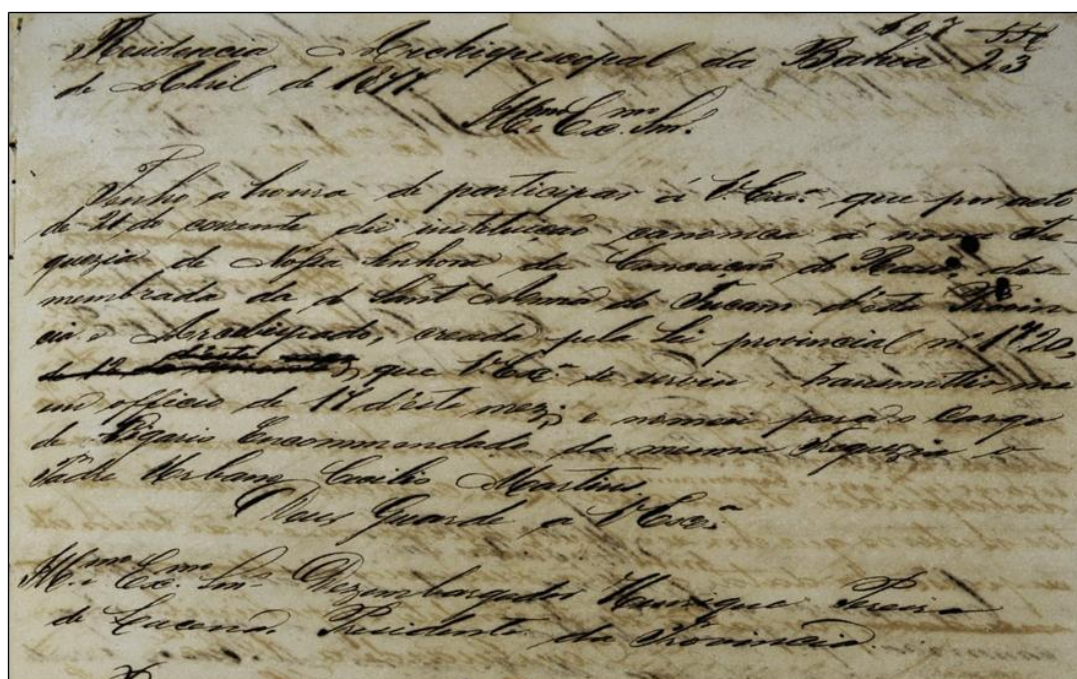 Residencia Archiepiscopal da Bahia 23
de Abril de 1877.
Illmo. e Exmo. Snr.
Tenho a honra de participar á V. Exa. que por acto
de 21 do corrente dei instituição canonica á nova Fre-
guezia de Nossa Senhora da Conceição do Raso, des-
membrada da de Sant'Anna do Tucano d'esta Provin
cia e Arcebispado, creada pela Lei provincial nº 1720,
que V. Exa. se serviu transmittir-me
em officio de 17 d'este mez; e nomeei para o cargo
de Vigario Encommendado da mesma Freguezia o
Padre Urbano Cecilio Martins.
Deus Guarde a V. Exa.
Illmo. e Exmo. Snr. Dezembargador Henrique Pereira
de Lucena. Presidente da Provincia.